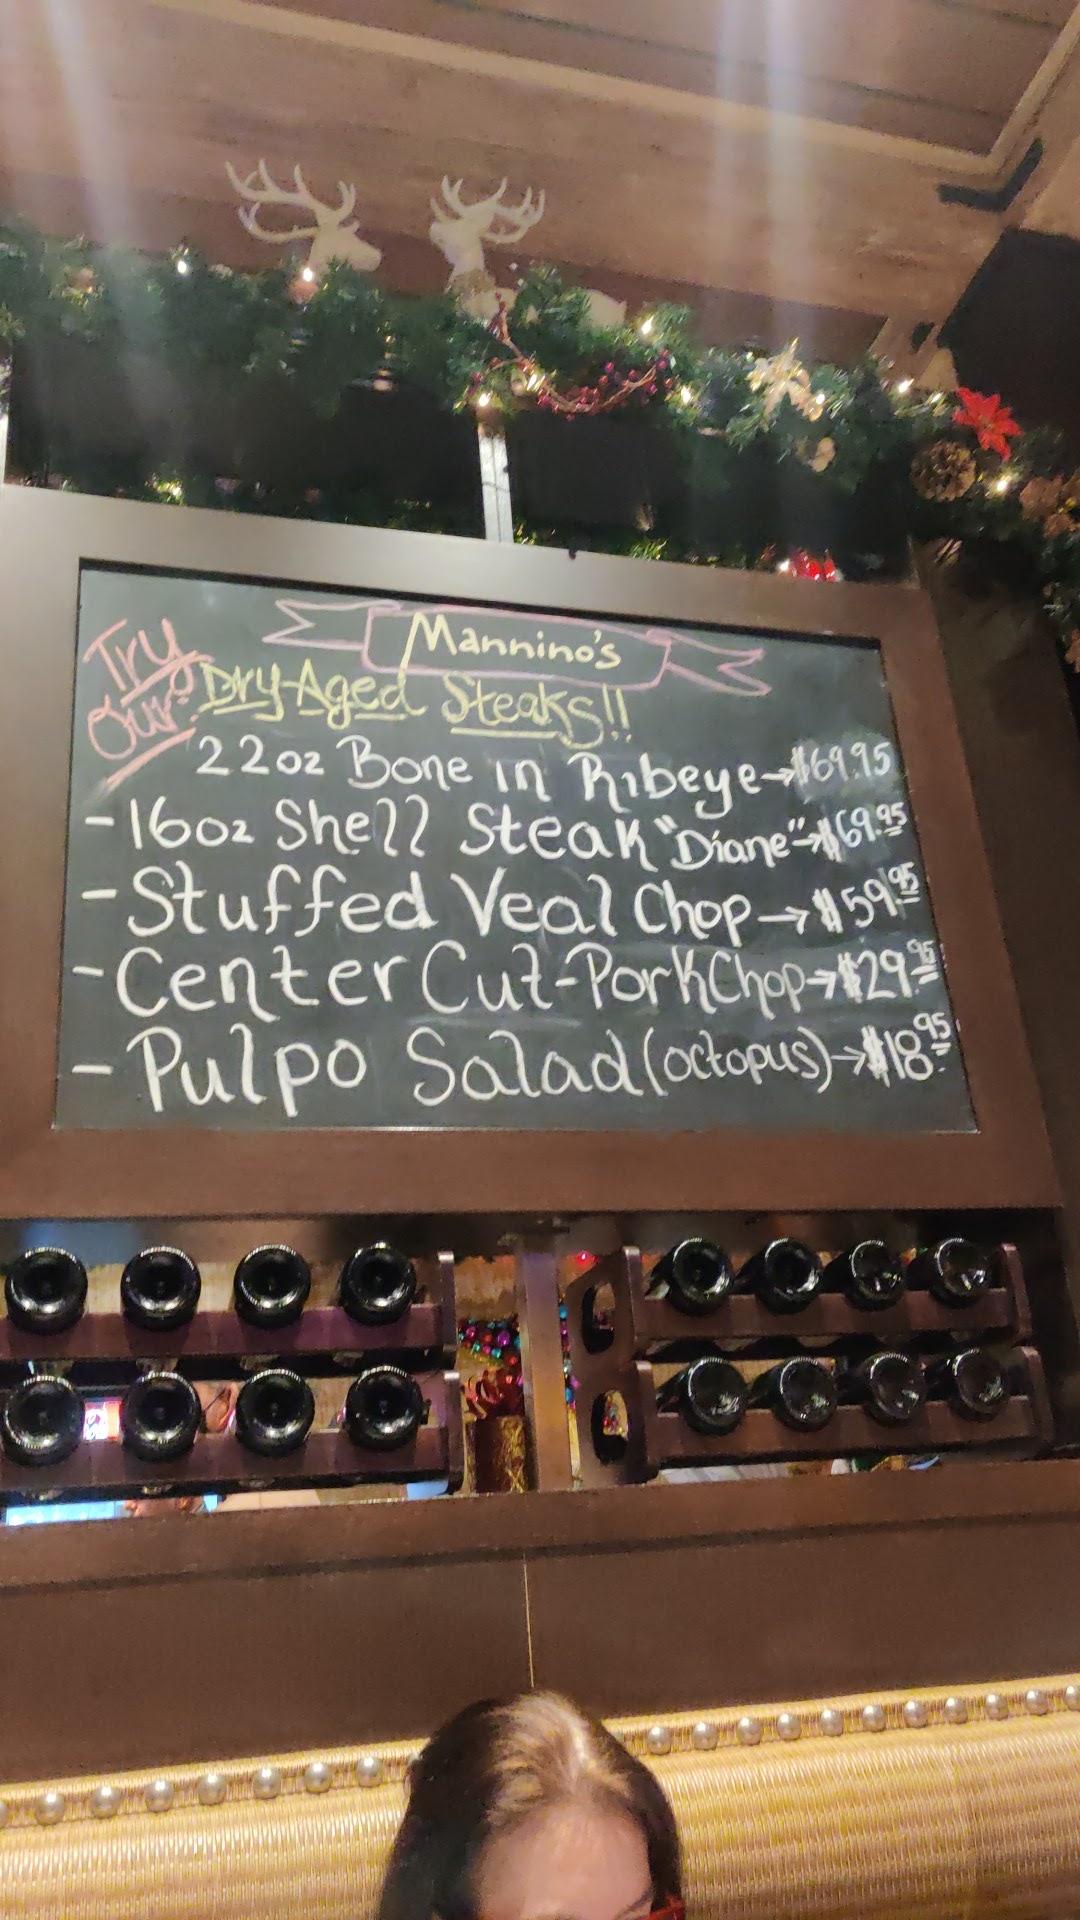 Mannino's
Try Our:
Dry-Aged Steaks!!
22oz Bone in Ribeye→$69.95
-16oz Shell Steak "Diane"→$69.95
-Stuffed Veal Chop→$59.95
-Center Cut-Pork Chop→$29.95
-Pulpo Salad(octopus)→$18.95